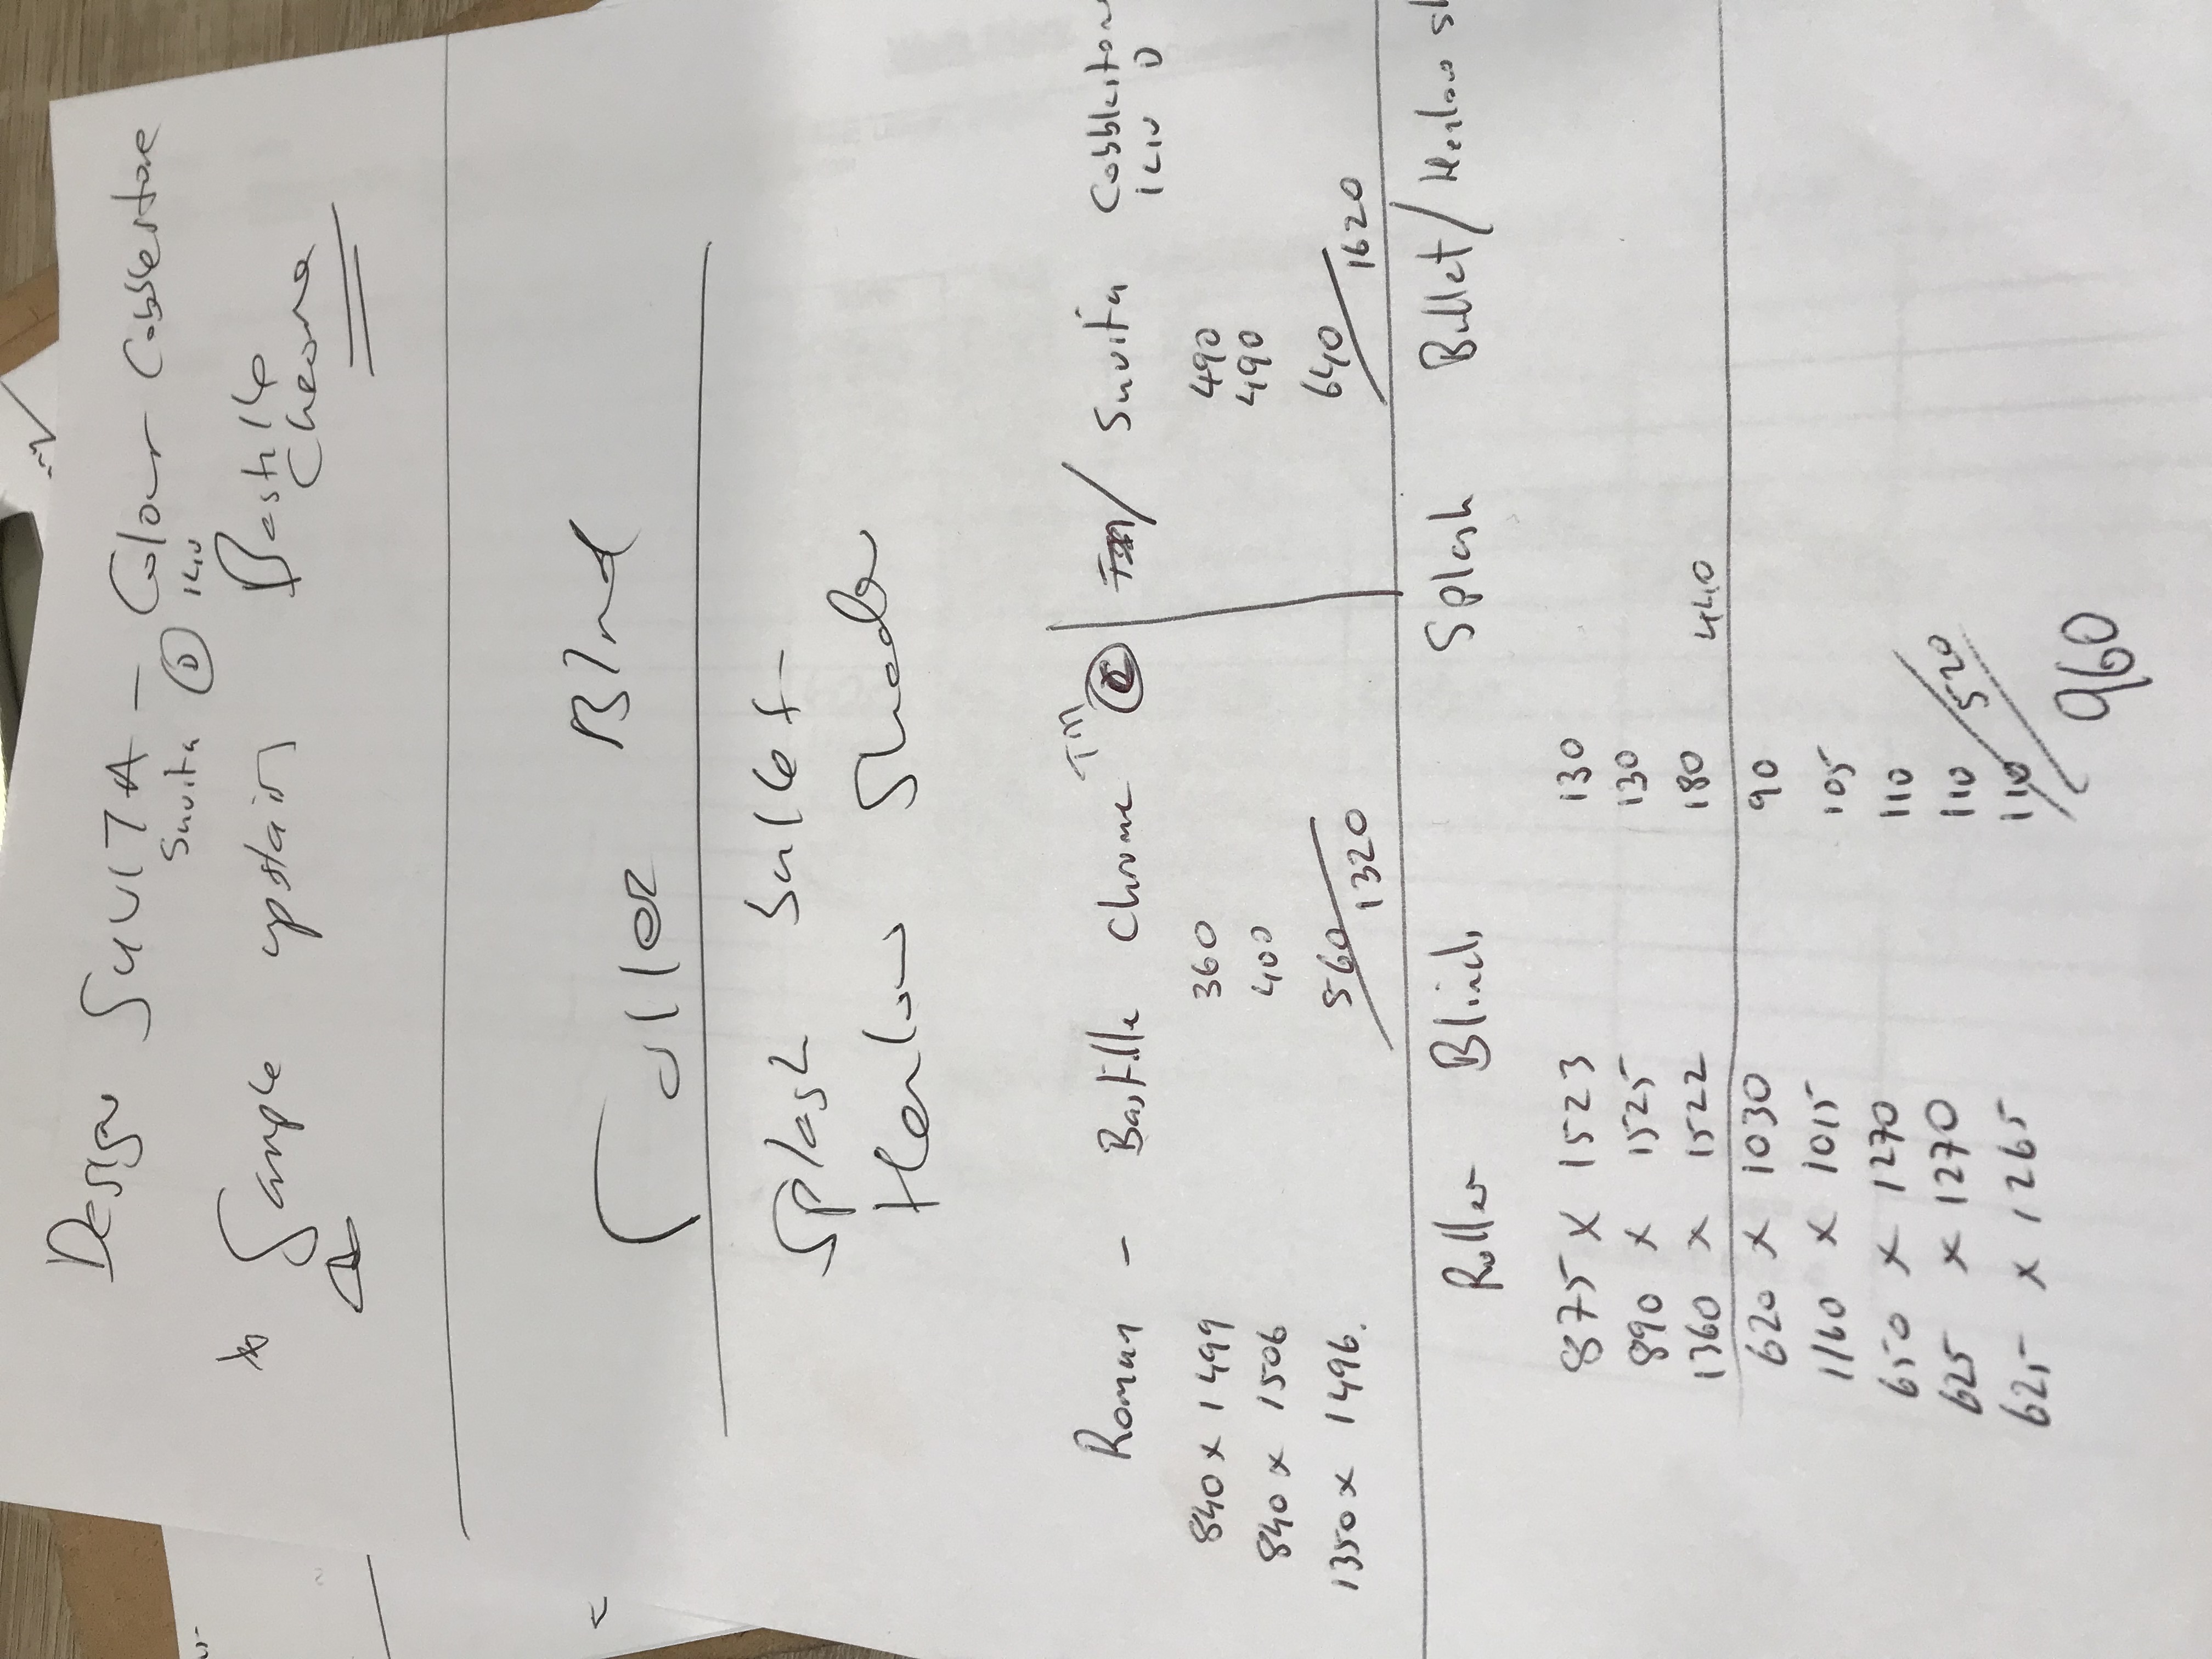 Design SUVITA - Colour Cobblestone
Suvita D KIV
* Sample upstairs Bastille
Chrome
Blind
Splash
Henlow Shade
Roman - Bastille Chrome Tm C / Suvita Cobblestone
KIV D
840 x 1499 360 490
840 x 1506 400 490
1350 x 1496. 560 640
1320 1620
Roller Blinds Splash Bullet / Henlow
875 x 1523 130
890 x 1525 130
1360 x 1522 180 440
620 x 1030 90
1160 x 1015 105
650 x 1270 110
625 x 1270 110 520
625 x 1265 110
960